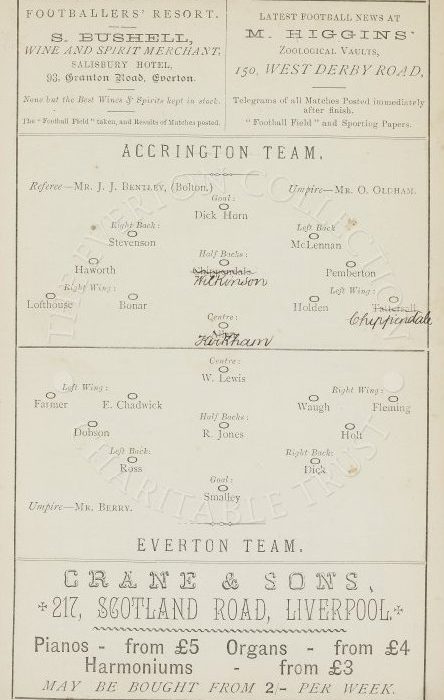 FOOTBALLERS' RESORT.
S. BUSHELL,
WINE AND SPIRIT MERCHANT,
SALISBURY HOTEL,
93, Granton Road, Everton.
None but the Best Wines & Spirits kept in stock.
The "Football Field" taken, and Results of Matches posted.
LATEST FOOTBALL NEWS AT
M. HIGGINS'
ZOOLOGICAL VAULTS,
150, WEST DERBY ROAD,
Telegrams of all Matches Posted immediately
after finish.
"Football Field" and Sporting Papers.
ACCRINGTON TEAM.
Referee—MR. J. J. BENTLEY, (Bolton.)
Umpire—MR. O. OLDHAM.
Goal:
Dick Horn
Right Back:
Stevenson
Left Back
McLennan
Half Backs:
Haworth
Chippendale
Wilkinson
Pemberton
Right Wing:
Left Wing:
Lofthouse
Bonar
Holden
Chippendale
Centre:
Kirkham
Centre:
W. Lewis
Left Wing:
Right Wing:
Farmer
E. Chadwick
Waugh
Fleming
Half Backs:
Dobson
R. Jones
Holt
Left Back:
Right Back:
Ross
Dick
Goal:
Smalley
Umpire—MR. BERRY.
EVERTON TEAM.
CRANE & SONS,
217, SCOTLAND ROAD, LIVERPOOL.
Pianos - from £5 Organs - from £4
Harmoniums - from £3
MAY BE BOUGHT FROM 2/- PER WEEK.
THE EVERTON COLLECTION
CHARITABLE TRUST